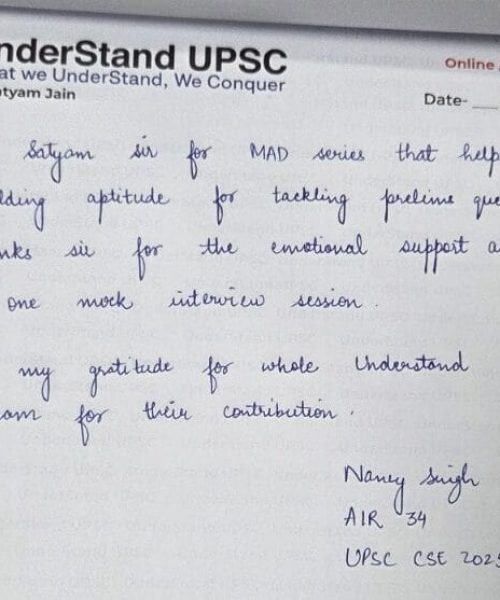 nderStand UPSC
at we UnderStand, We Conquer
tyam Jain
Online
Date-
Satyam sir for MAD series that help
lding aptitude for tackling prelims que
nks sir for the emotional support a
one mock interview session.
my gratitude for whole Understand
am for their contribution.
Nancy Singh
AIR 34
UPSC CSE 2025